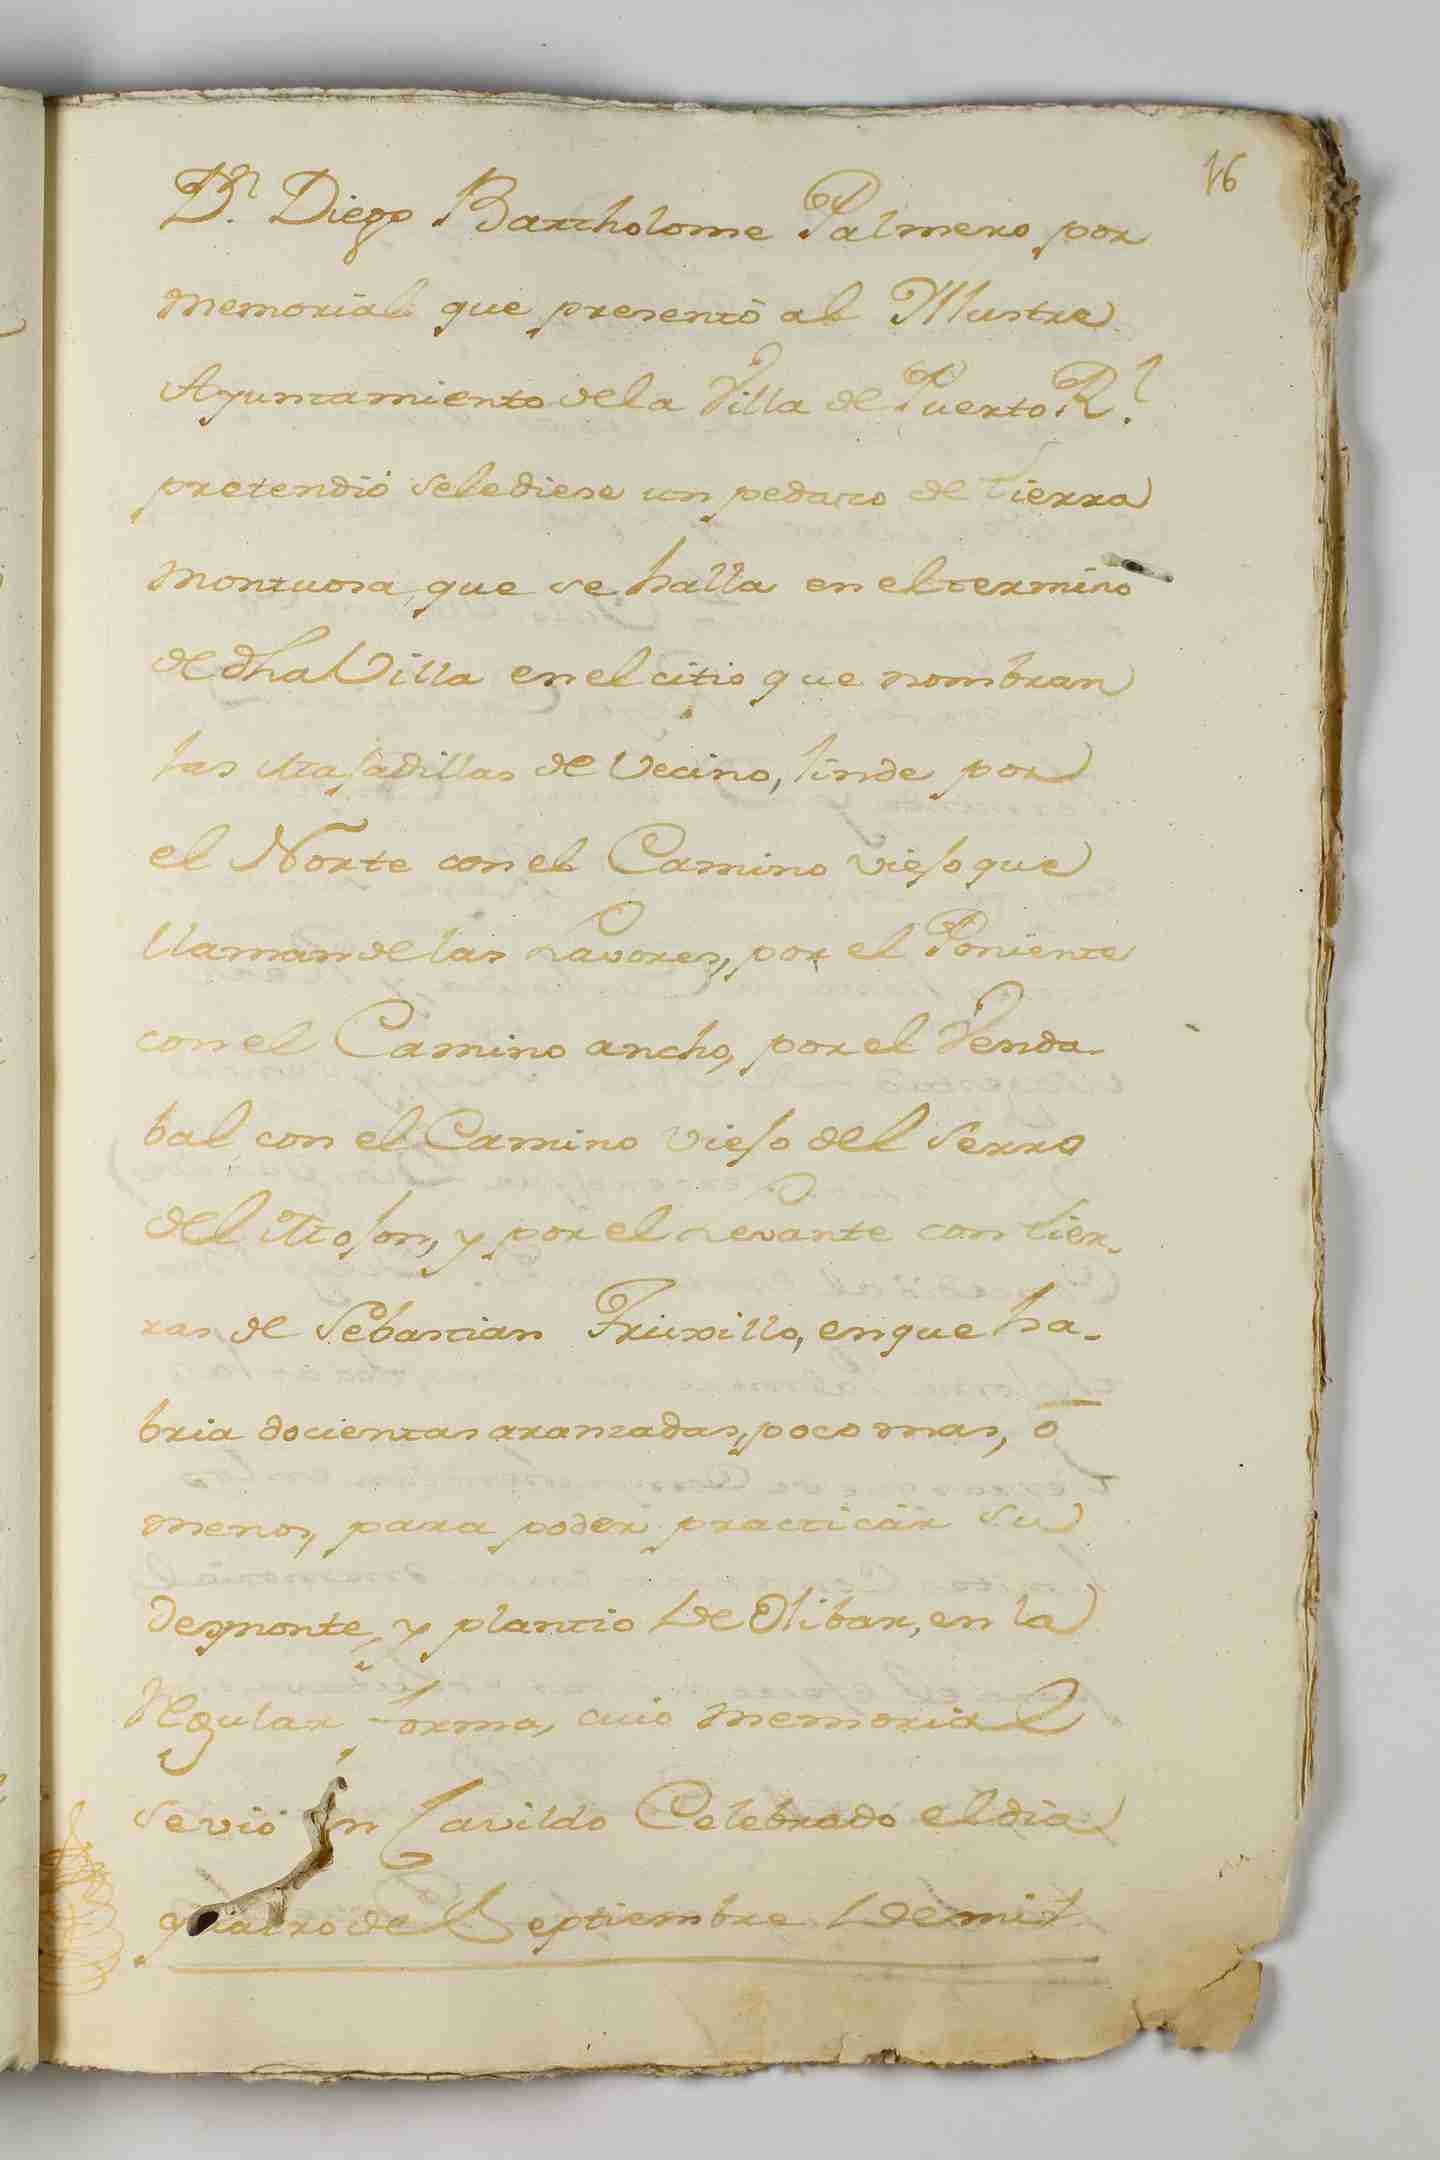 16
Dn. Diego Bartholome Palmero por
memorial que presentó al Yllustre
Ayuntamiento dela Villa de Puerto Rl.
pretendió selediese un pedazo de tierra
montuosa, que se halla en eltermino
de dha Villa enel citio que nombran
las Majadillas de Vecino, linde por
el Norte con el Camino viejo que
llaman de las Lavores, por el Poniente
con el Camino ancho, por el Venda-
bal con el Camino viejo del serro
del Mojon, y por el Levante con tier-
ras de Sebastian Truxillo, enque ha-
bria docientas aranzadas, poco mas, ó
menos, para poder practicar su
desmonte, y plantio de Olibar, en la
regular forma, cuio memorial
se vió en Cavildo Celebrado el dia
quatro de Septiembre de mil